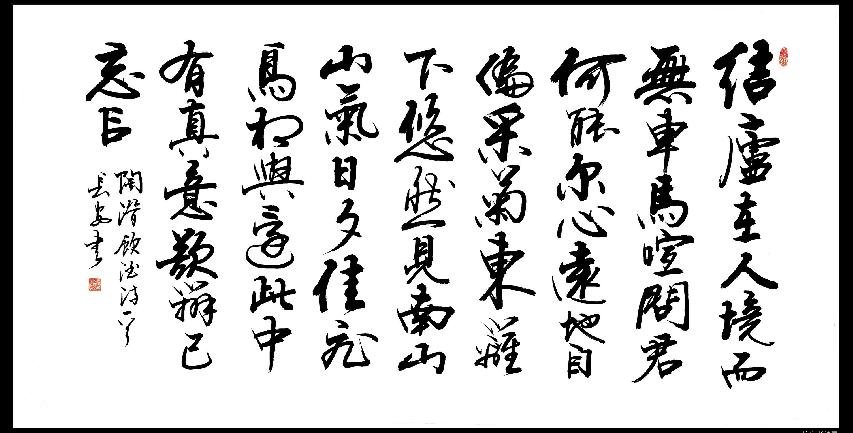 結廬在人境而
無車馬喧問君
何能尔心遠地自
偏采菊東籬
下悠然見南山
山氣日夕佳飛
鳥相與還此中
有真意欲辨已
忘言
陶潛飲酒詩一首
長安書